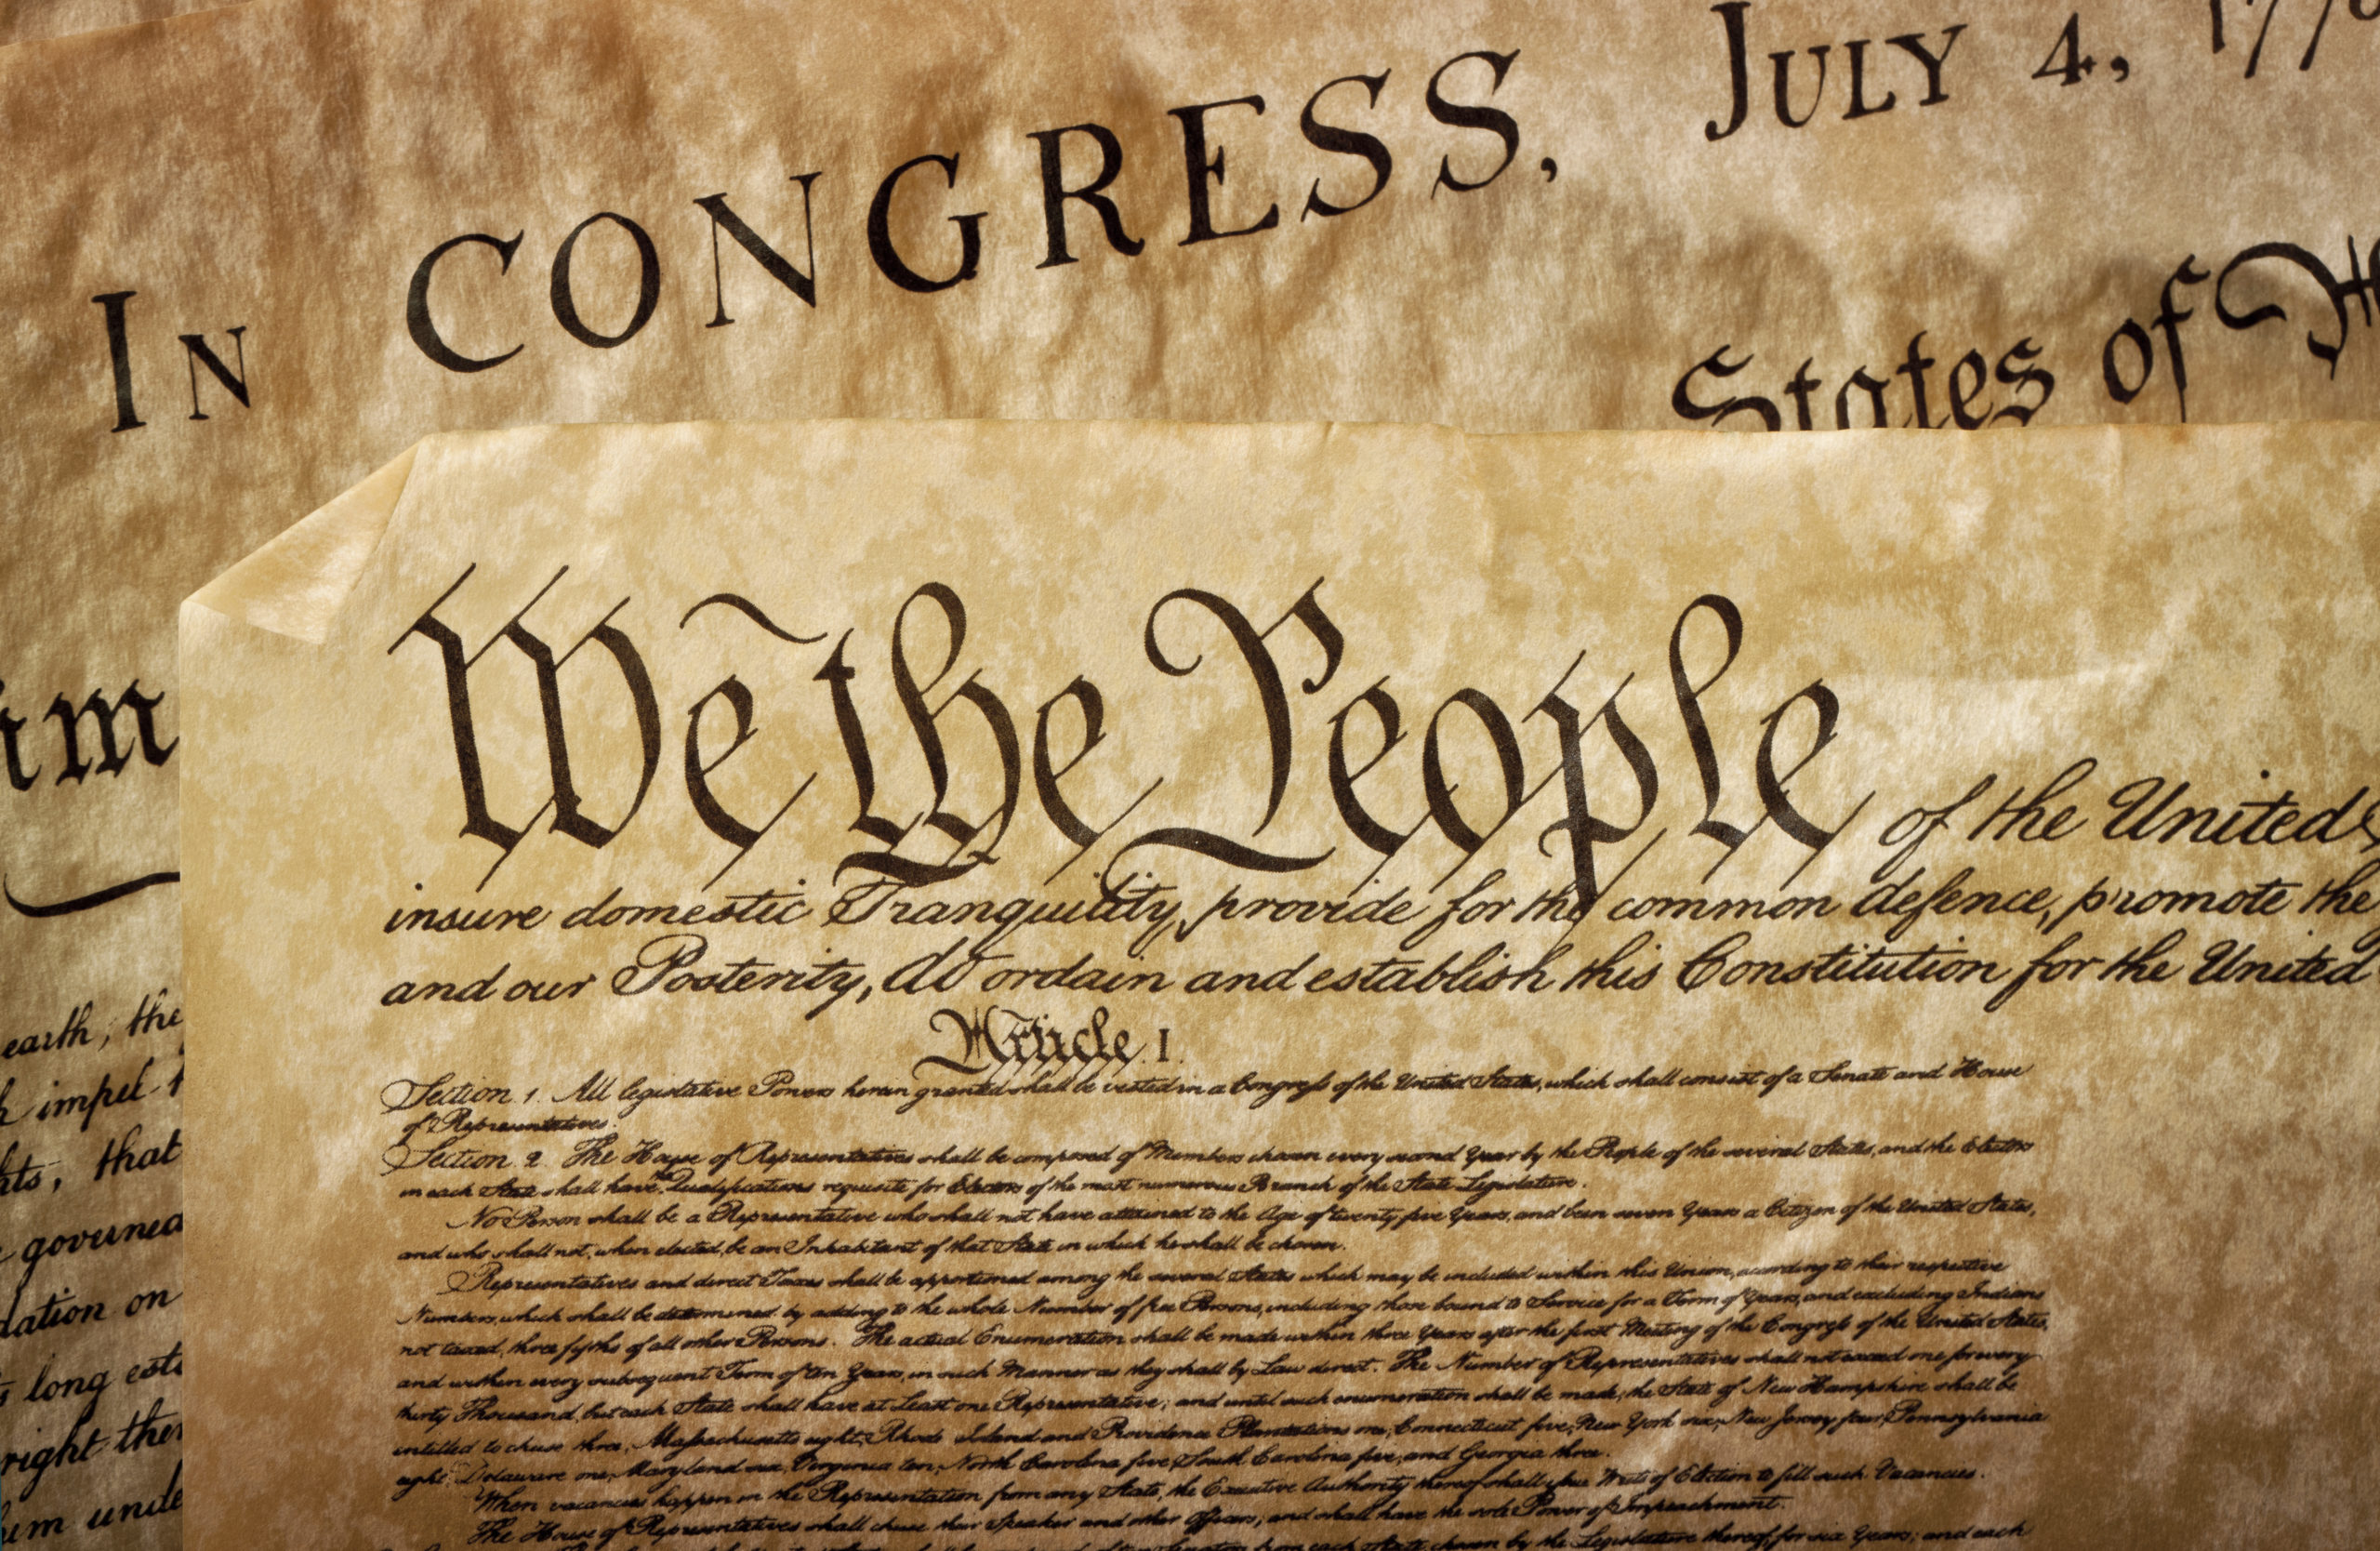 In CONGRESS, July 4, 177
States of
im
We the People of the United
insure domestic Tranquility, provide for the common defence, promote the
and our Posterity, do ordain and establish this Constitution for the United
Article. I.
Section. 1. All legislative Powers herein granted shall be vested in a Congress of the United States, which shall consist of a Senate and House
of Representatives.
Section. 2. The House of Representatives shall be composed of Members chosen every second Year by the People of the several States, and the Electors
in each State shall have the Qualifications requisite for Electors of the most numerous Branch of the State Legislature.
No Person shall be a Representative who shall not have attained to the Age of twenty five Years, and been seven Years a Citizen of the United States,
and who shall not, when elected, be an Inhabitant of that State in which he shall be chosen.
Representatives and direct Taxes shall be apportioned among the several States which may be included within this Union, according to their respective
Numbers, which shall be determined by adding to the whole Number of free Persons, including those bound to Service for a Term of Years, and excluding Indians
not taxed, three fifths of all other Persons. The actual Enumeration shall be made within three Years after the first Meeting of the Congress of the United States,
and within every subsequent Term of ten Years, in such Manner as they shall by Law direct. The Number of Representatives shall not exceed one for every
thirty Thousand, but each State shall have at Least one Representative; and until such enumeration shall be made, the State of New Hampshire shall be
entitled to chuse three, Massachusetts eight, Rhode Island and Providence Plantations one, Connecticut five, New York six, New Jersey four, Pennsylvania
eight, Delaware one, Maryland six, Virginia ten, North Carolina five, South Carolina five, and Georgia three.
When vacancies happen in the Representation from any State, the Executive Authority thereof shall issue Writs of Election to fill such Vacancies.
The House of Representatives shall chuse their Speaker and other Officers; and shall have the sole Power of Impeachment.
from each State chosen by the Legislature thereof, for six Years; and each
earth, the
impel
that
governed
dation on
long esta
right ther
um unde